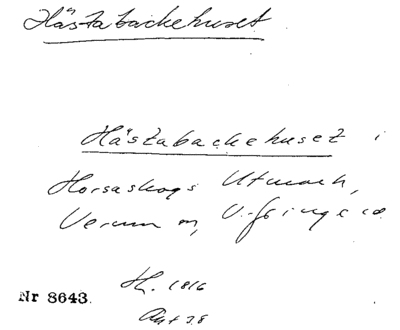 Hästabackehuset
Hästabackehuset i
Horsaskogs Utmark,
Verum sn, V. Göinge hd.
Hl. 1816
Nr 8643.